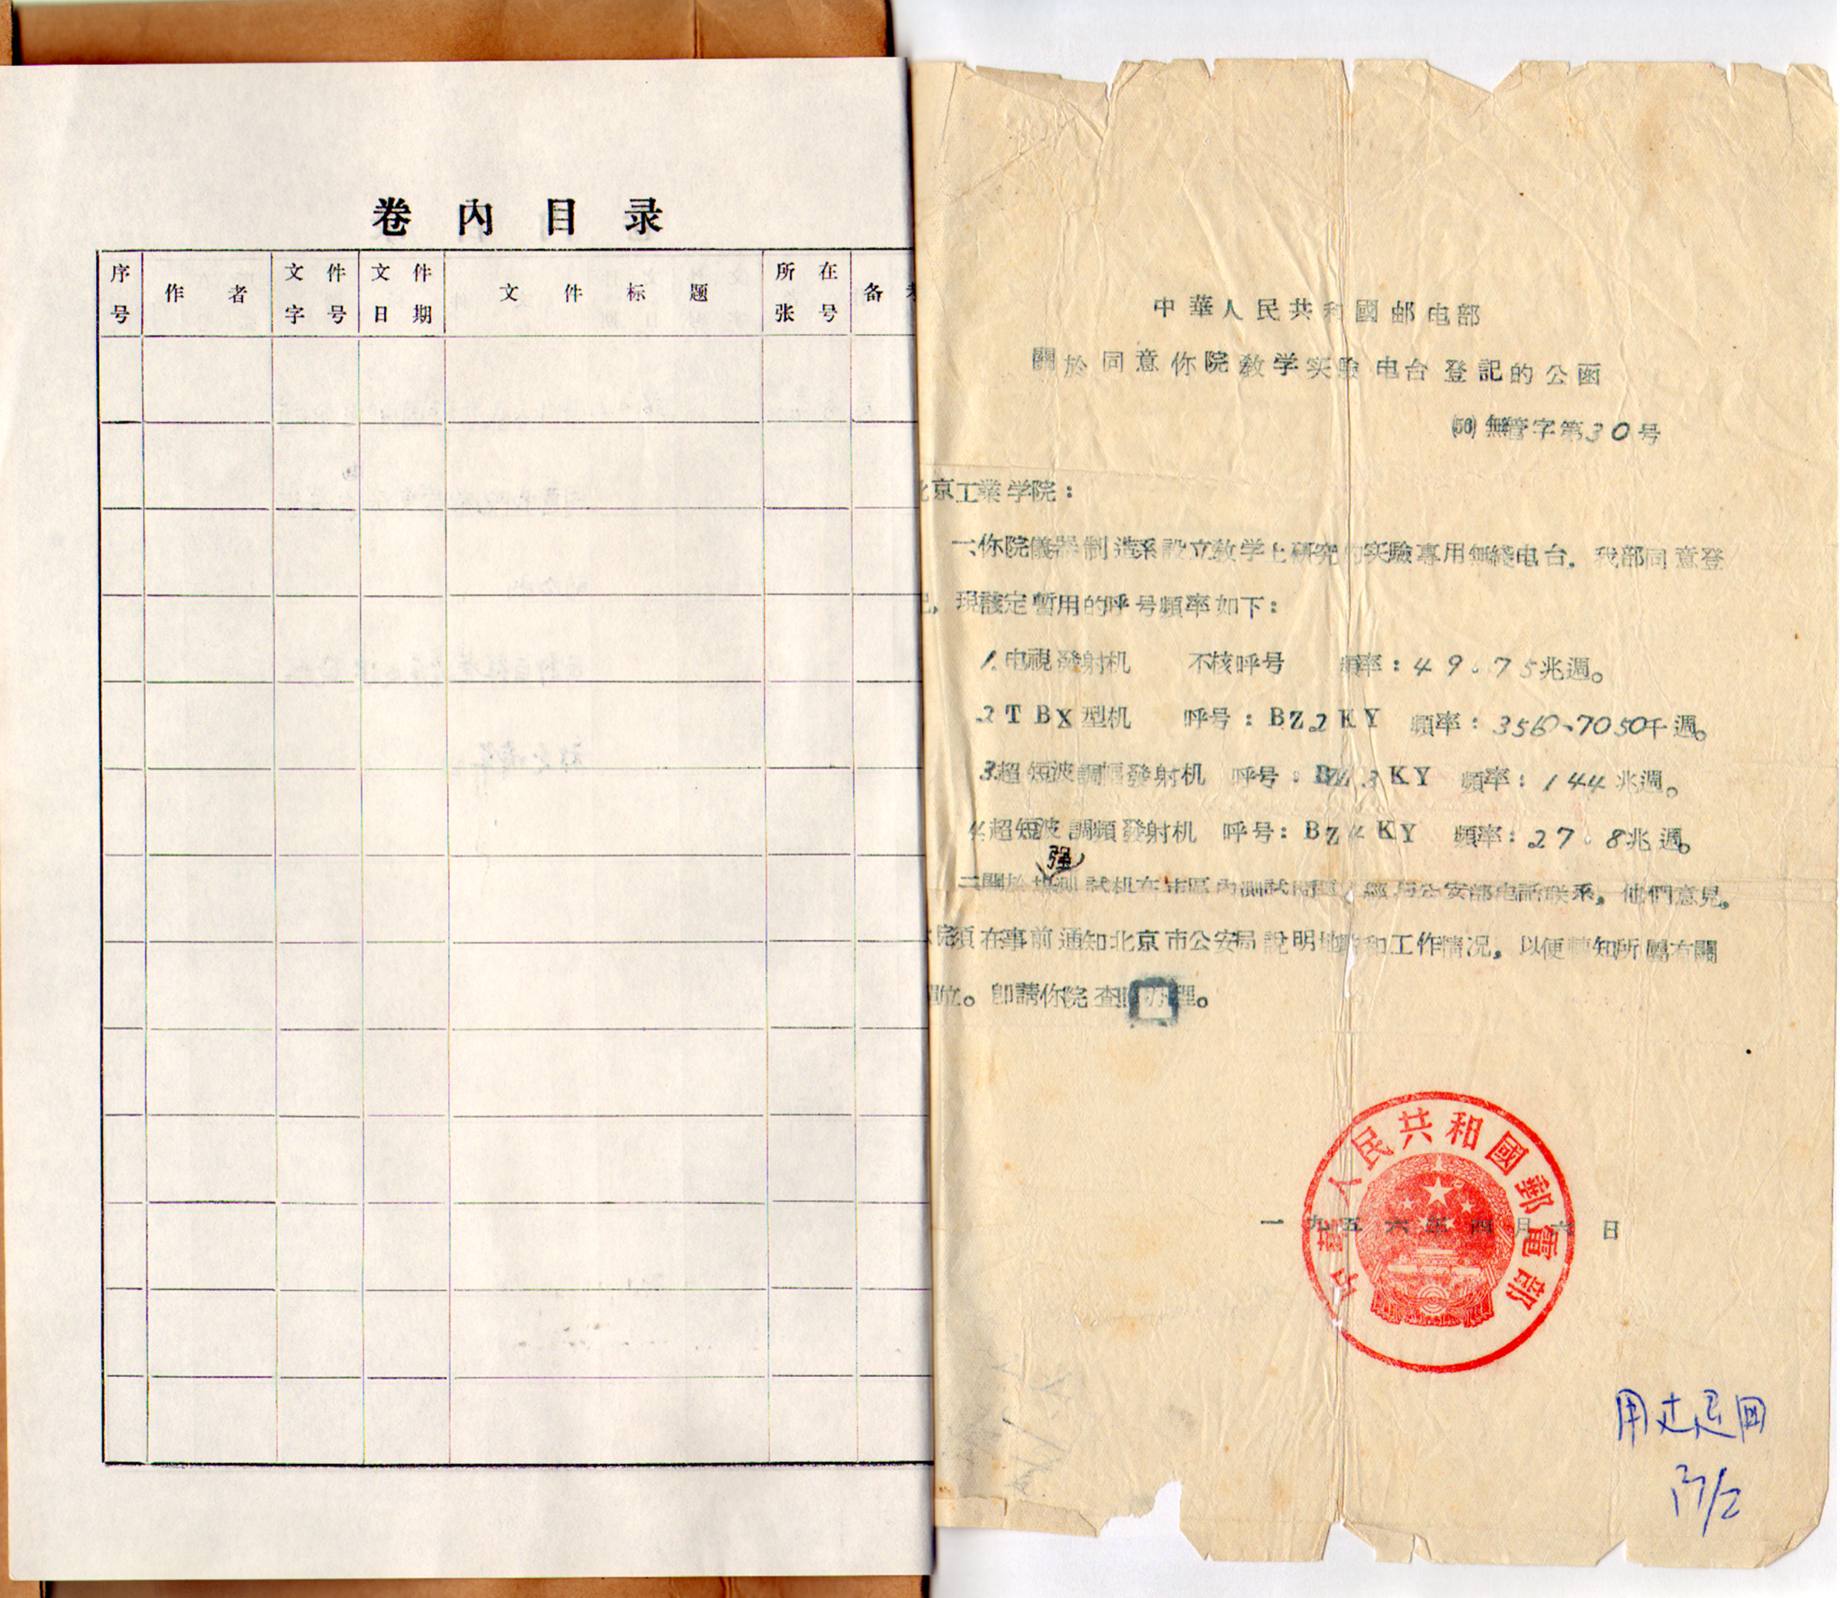 卷内目录
序号
作者
文件字号
文件日期
文件标题
所在张号
备
中華人民共和國邮电部
關於同意你院教学实驗电台登記的公函
(56)無管字第30号
京工業学院：
一、你院儀器制造系設立教学上研究的实驗專用無綫电台。我部同意登
，現該定暫用的呼号頻率如下：
1.电視發射机 不核呼号 頻率：49.75兆週。
2 TBX型机 呼号：BZ2KY 頻率：3560、7050千週。
3.超短波調幅發射机 呼号：BZ3KY 頻率：144兆週。
4.超短波調頻發射机 呼号：BZ4KY 頻率：27.8兆週。
强
二關於 測試机在市區內測試 經与公安部电話联系，他們意見，
院須在事前通知北京市公安局說明地 和工作情况，以便轉知所屬有關
位。即請你院查照办理。
一九五六年四月六日
中華人民共和國郵電部
用过退回